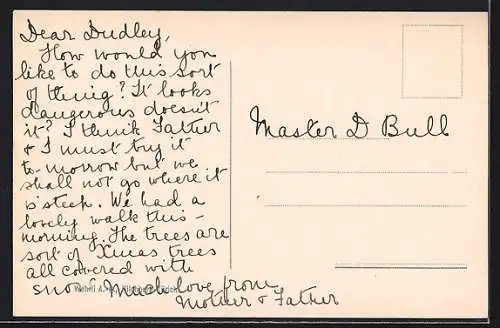 Dear Dudley,
How would you
like to do this sort
of thing? It looks
dangerous doesn't
it? I think Father
& I must try it
to-morrow but we
shall not go where it
is steep. We had a
lovely walk this
morning. The trees are
sort of Xmas trees
all covered with
snow. Much love from
Mother & Father
Master D Bull